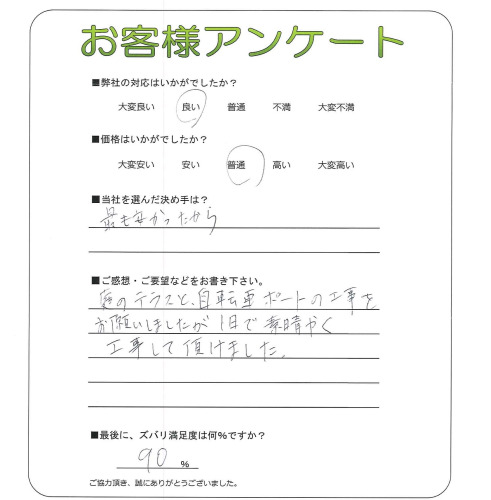 お客様アンケート
■弊社の対応はいかがでしたか？
大変良い 良い 普通 不満 大変不満
■価格はいかがでしたか？
大変安い 安い 普通 高い 大変高い
■当社を選んだ決め手は？
最も安かったから
■ご感想・ご要望などをお書き下さい。
庭のテラスと、自転車ポートの工事を
お願いしましたが1日で素晴やく
工事して頂けました。
■最後に、ズバリ満足度は何％ですか？
90 %
ご協力頂き、誠にありがとうございました。